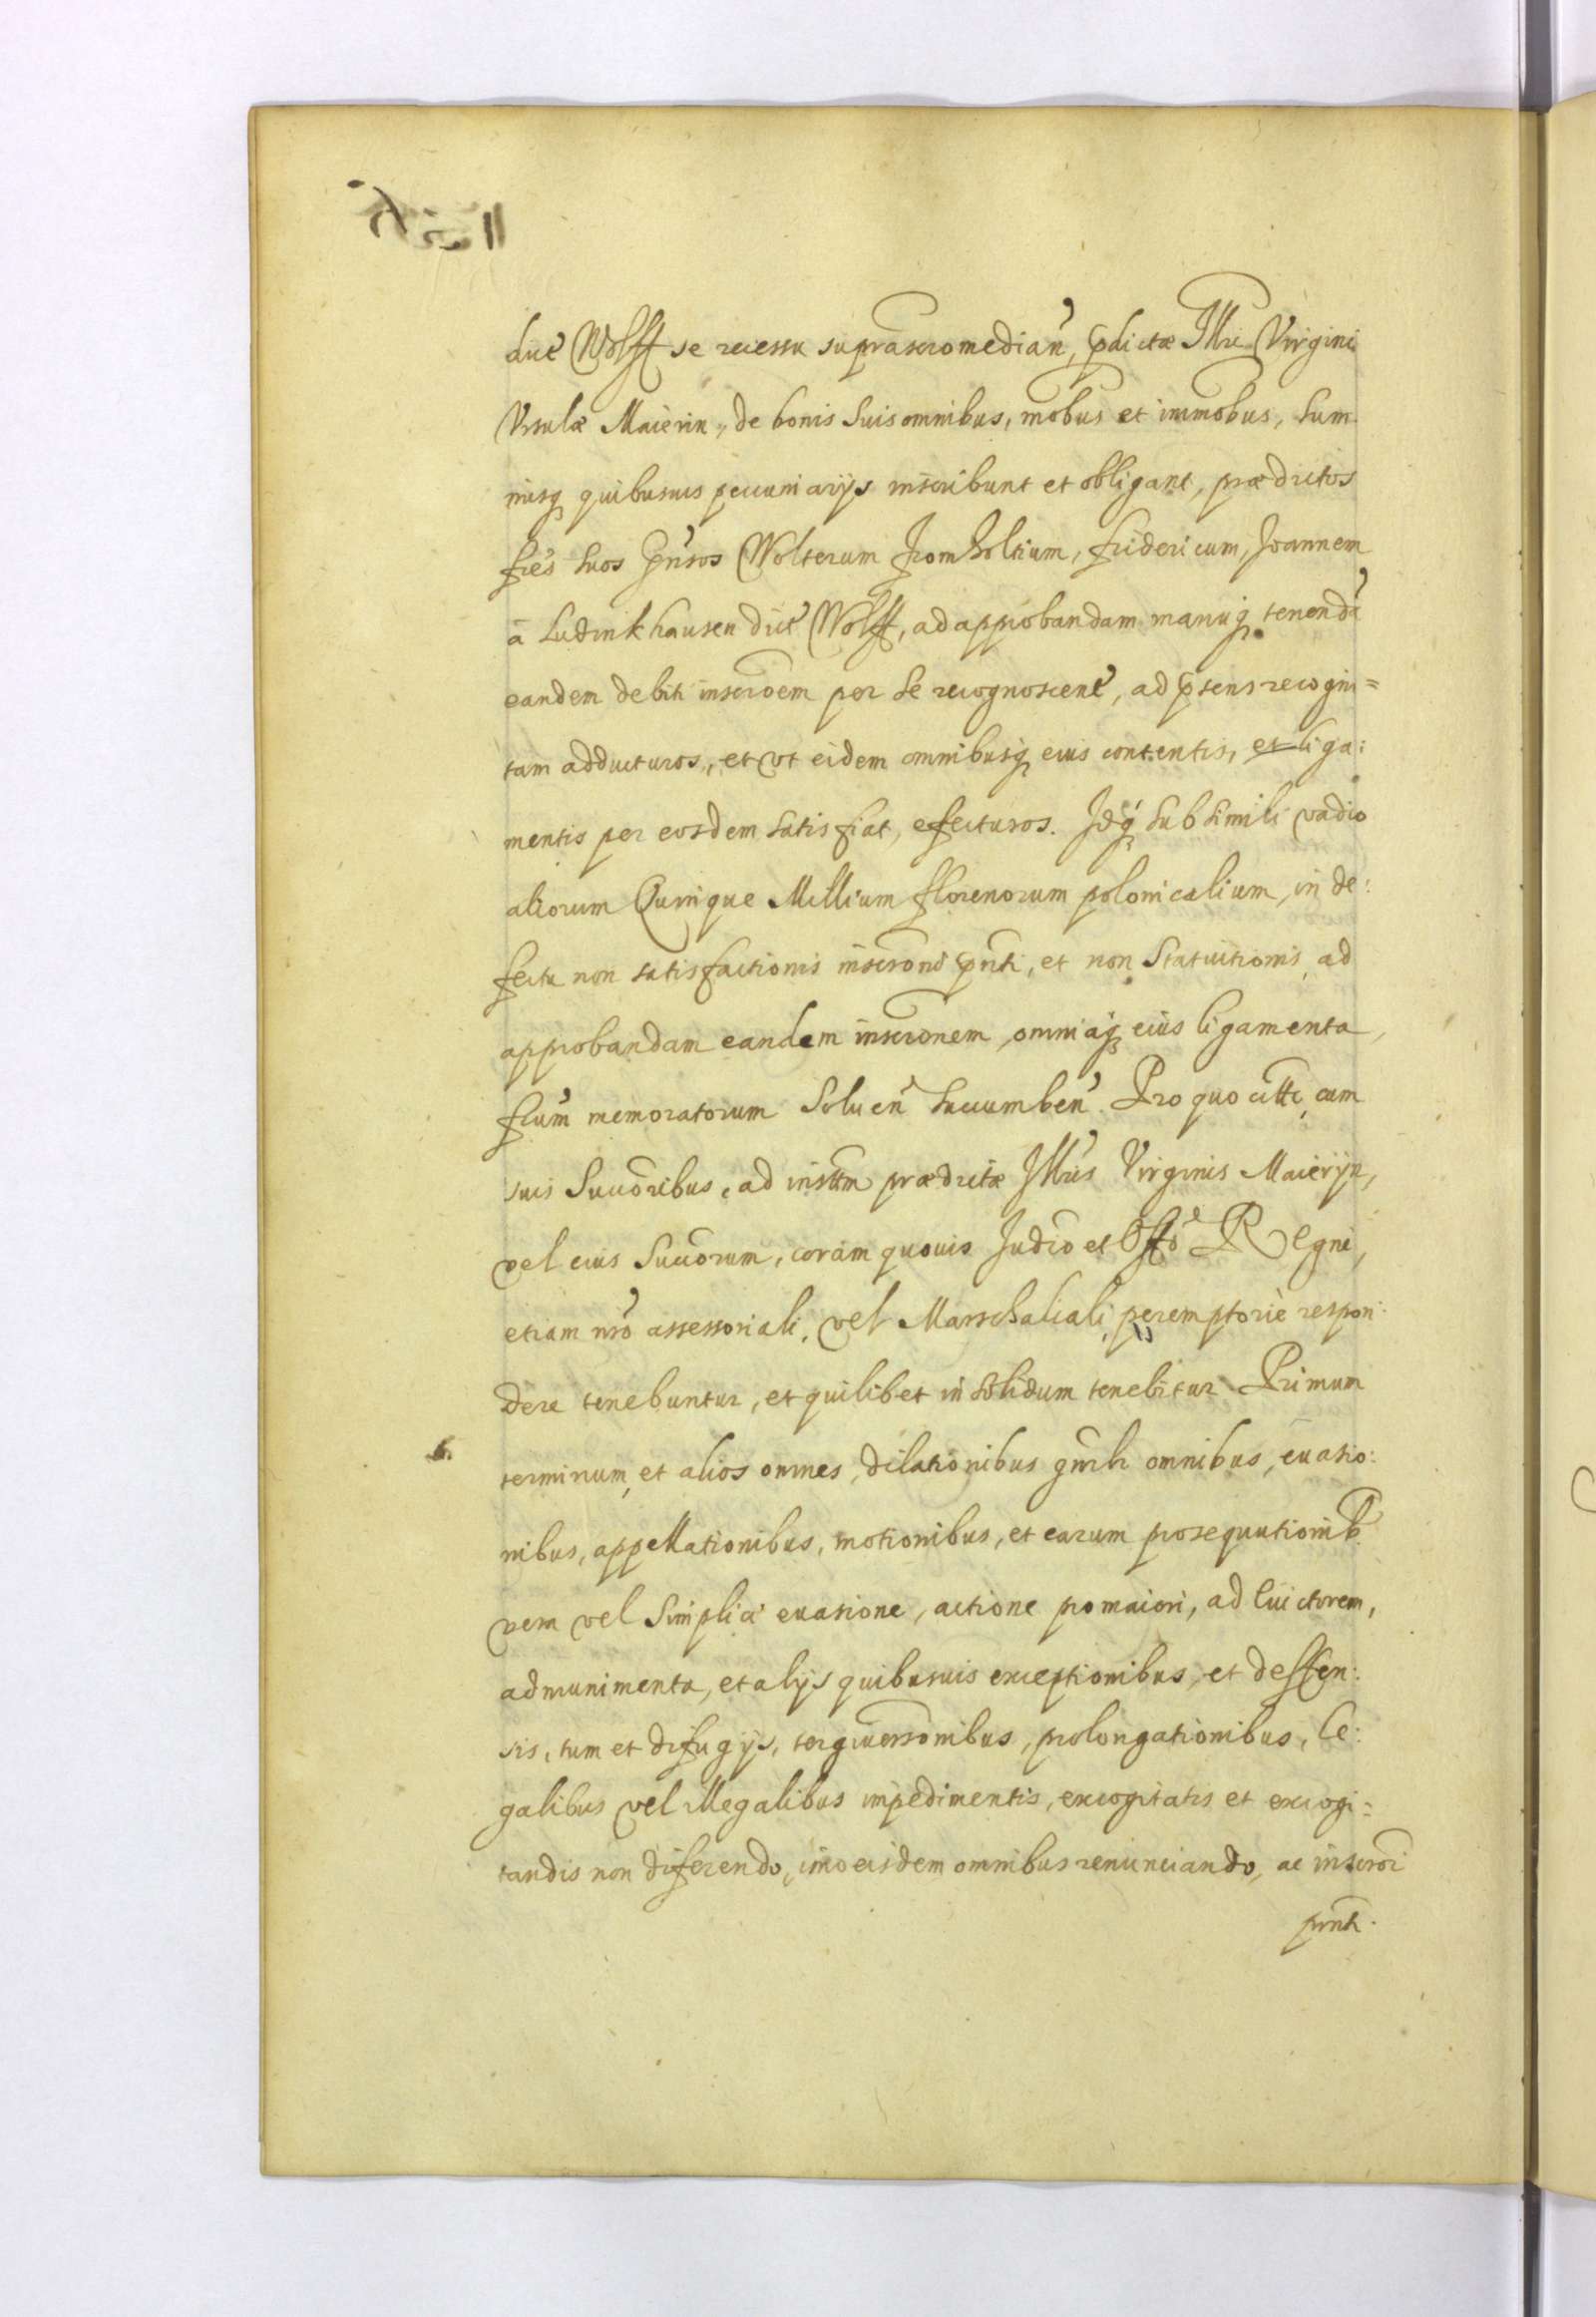 dict Wolff se recessu suprascromedian, pdictæ Illri Virgini
Vrsulæ Maierin, de bonis suis omnibus, mobus et immobus, sum
misq quibusuis pecuniarijs inscribunt et obligant, prædictos
fres suos gnsos Wolterum Fromholtium, Fridericum, Joannem
à Ludinkhausen dict Wolff, ad approbandam manuq tenendā
eandem debiti inscroem per se recognoscent, ad psens recogni=
tam adducturos, et vt eidem omnibusq eius contentis, et liga:
mentis per eosdem satisfiat, effecturos. Idq sub simili vadio
aliorum Quinque Millium florenorum polonicalium, in de:
fectu non satisfactionis inscroni pnti, et non Statuitionis, ad
approbandam eandem inscronem, omniaq eius ligamenta,
frum memoratorum Soluen succumben. Pro quo citti, cum
suis Succoribus, ad insttm prædictæ Illris Virginis Maierijn,
vel eius Succorum, coram quouis Judicio et Offo Regni,
etiam nro assessoriali, vel Marschaliali, peremptorie respon:
dere tenebuntur, et quilibet in solidum tenebitur. Primum
terminum, et alios omnes, dilationibus gnrli omnibus, euatio:
nibus, appellationibus, motionibus, et earum prosequutionib
vera vel simplici euasione, actione pro maiori, ad euictorem,
ad munimenta, et alijs quibusuis exceptionibus, et deffen:
sis, tum et difugijs, tergiuersonibus, prolongationibus, le:
galibus vel illegalibus impedimentis, excogitatis et excogi=
tandis non diferendo, imo eisdem omnibus renunciando, ac inscroi
pnti.